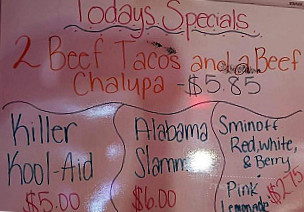 Todays Specials
2 Beef Tacos and a Beef
Chalupa - $5.85
Killer
Kool-Aid
$5.00
Alabama
Slamm
$6.00
Sminoff
Red, white,
& Berry
Pink
Lemonade
$2.75